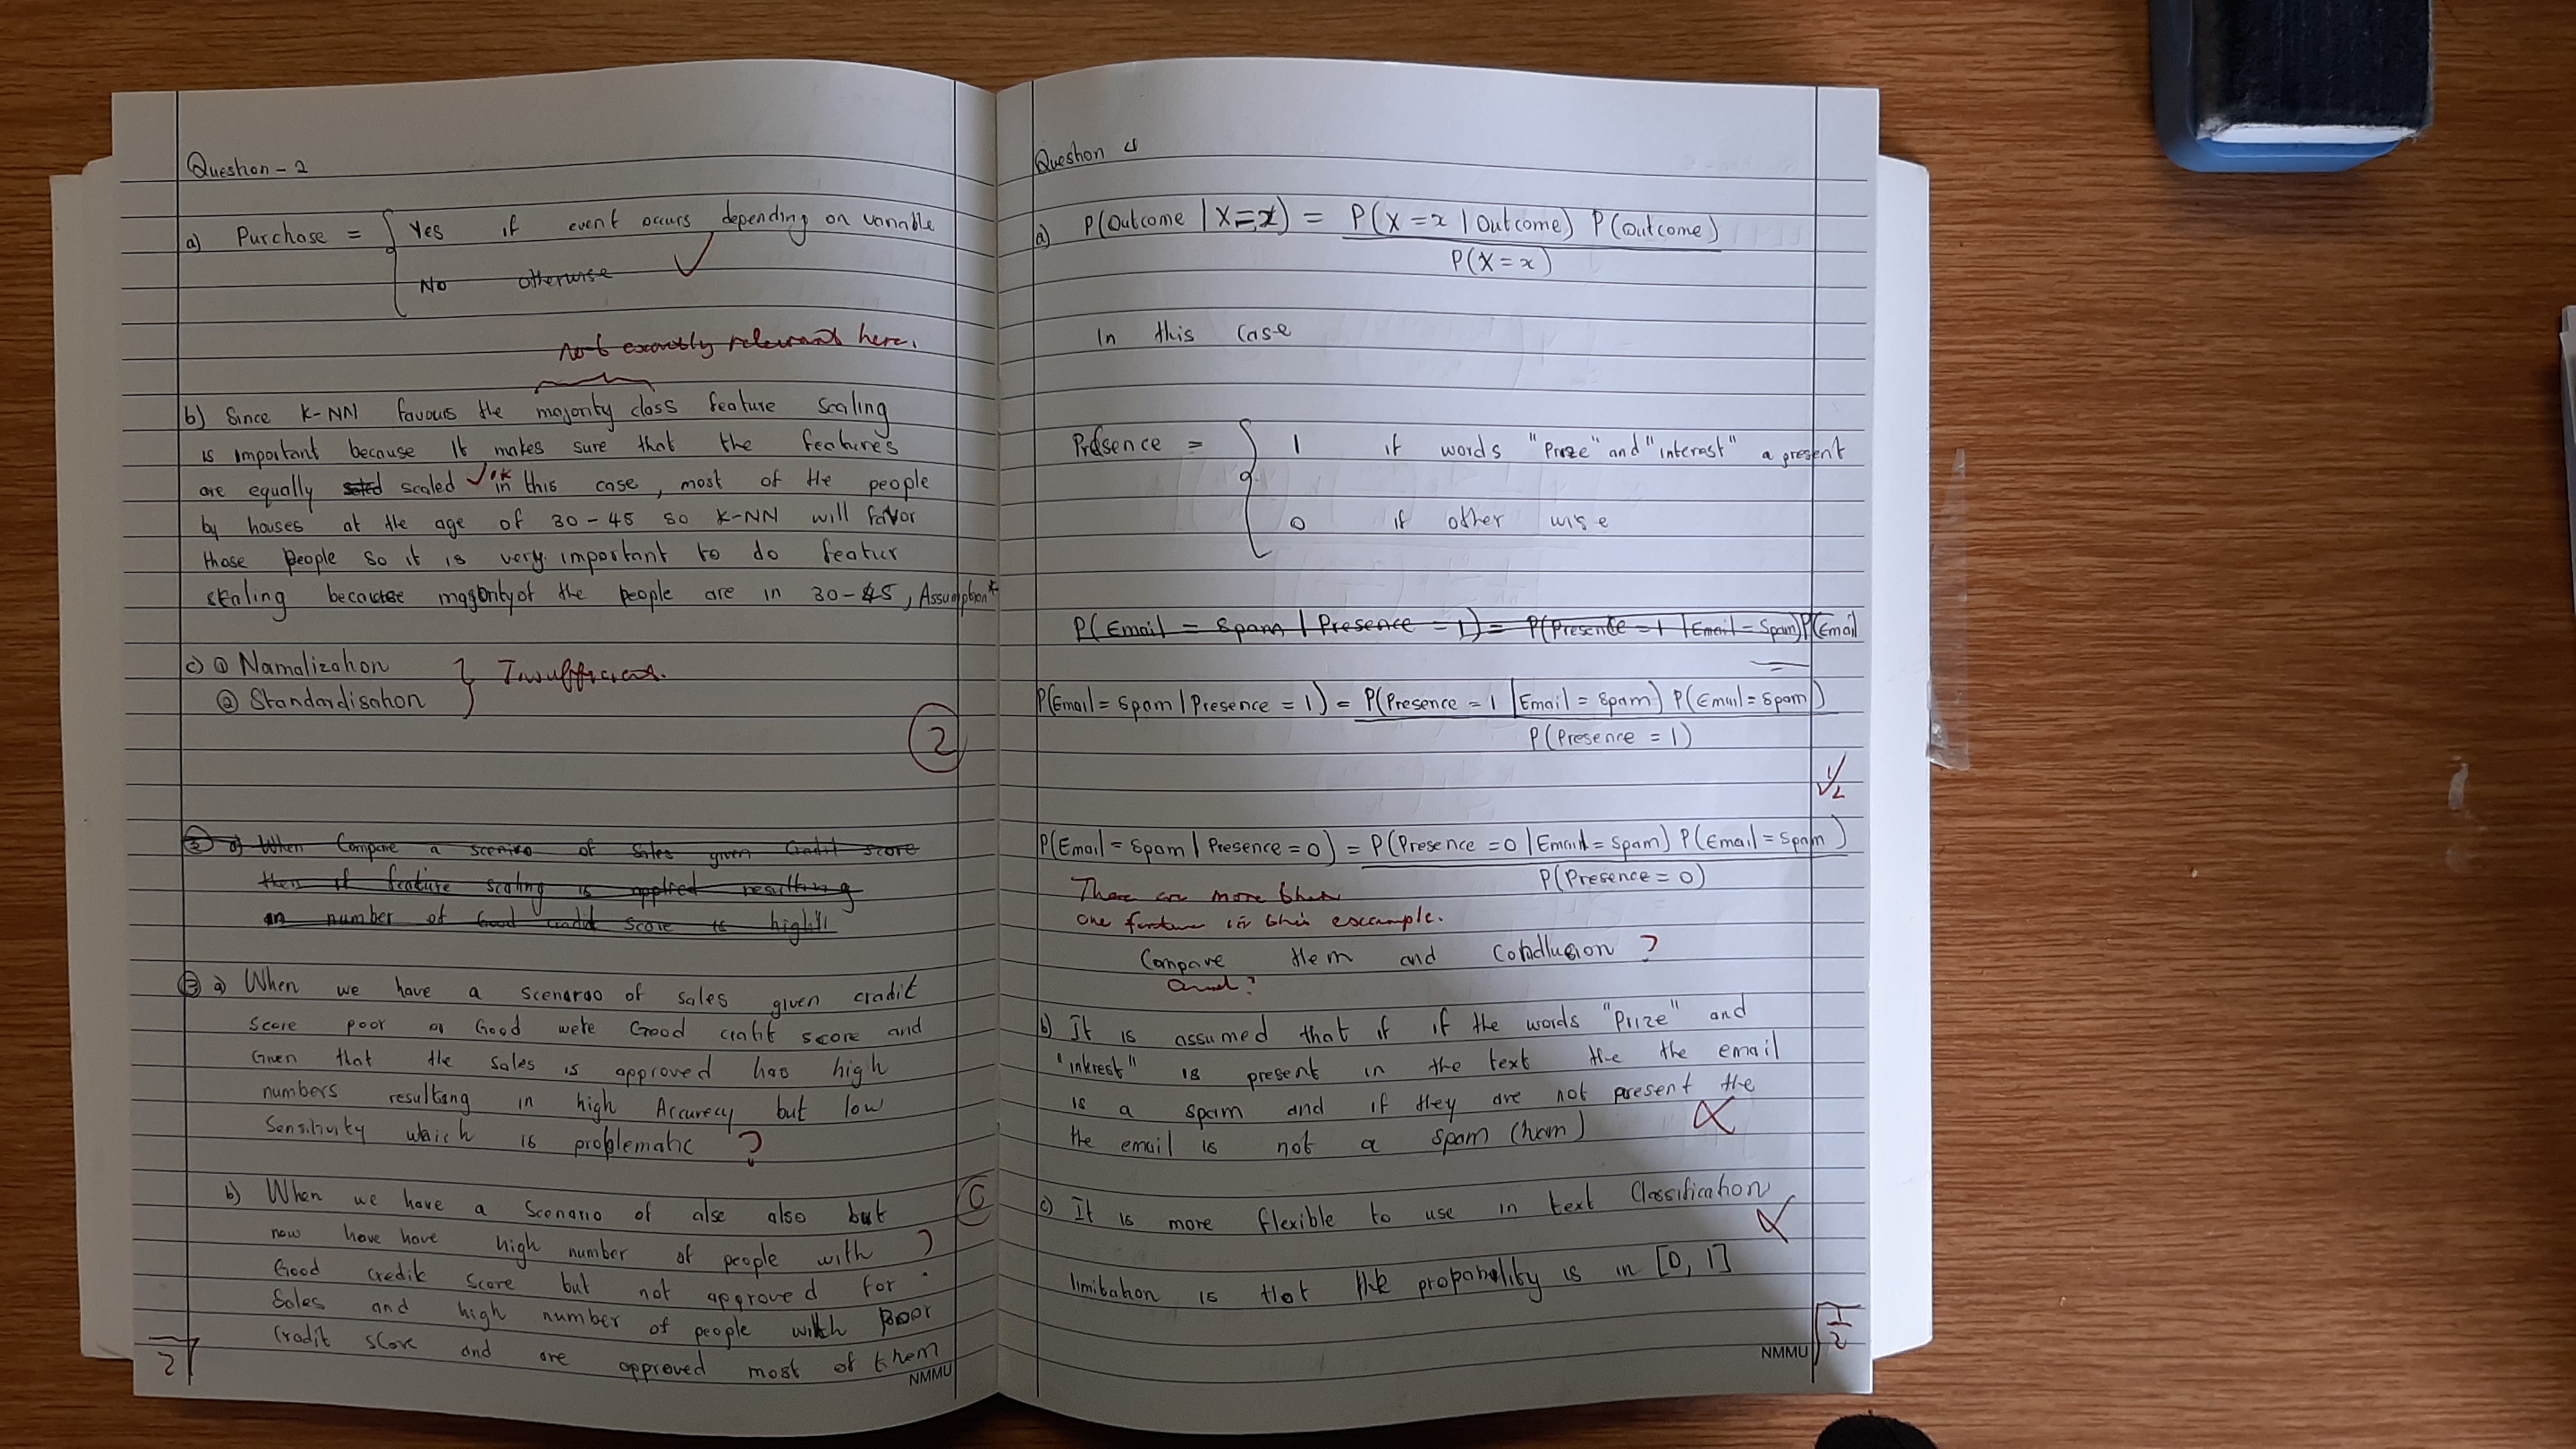 Question - 2
a) Purchase = { Yes if event occurs depending on variable
No otherwise
not exactly relevant here.
b) Since K-NN favours the majority class feature scaling
is important because it makes sure that the features
are equally scaled ok in this case, most of the people
by houses at the age of 30-45 so K-NN will favor
those people so it is very important to do featur
scaling because majority of the people are in 30-45, Assumption*
c) ① Namalization
② Standardisation } Insufficient.
2
③ a) When Compare a scenario of Sales given Credit score
then if feature scaling is applied resulting
an number of Good credit score is high
③ a) When we have a scenaroo of sales given cradit
score poor or Good wete Good cratit score and
Given that the sales is approved has high
numbers resulting in high Accurecy but low
Sensitivity which is problematic ?
b) When we have a Scenario of alse also but
now have have high number of people with ?
Good credit score but not approved for
Sales and high number of people with poor
Cradit score and are approved most of them
0
2
NMMU
Question 4
a) P(Outcome | X=x) = P(X=x | Outcome) P(Outcome)
P(X=x)
In this Case
Presence = { 1 if words "Prize" and "interest" a present
0 if other wise
P(Email = Spam | Presence = 1) = P(Presence = 1 | Email = Spam) P(Email
=
P(Email = Spam | Presence = 1) = P(Presence = 1 | Email = Spam) P(Email = Spam)
P(Presence = 1)
1/2
P(Email = Spam | Presence = 0) = P(Presence = 0 | Email = Spam) P(Email = Spam)
P(Presence = 0)
There are more than
one feature in this example.
Compare them and Condlusion ?
and?
b) It is assumed that if if the words "Prize" and
"intrest" is present in the text the the email
is a spam and if they are not present the
the email is not a spam (ham)
c) It is more flexible to use in text Classification
limitation is that the propability is in [0, 1]
1/2
NMMU